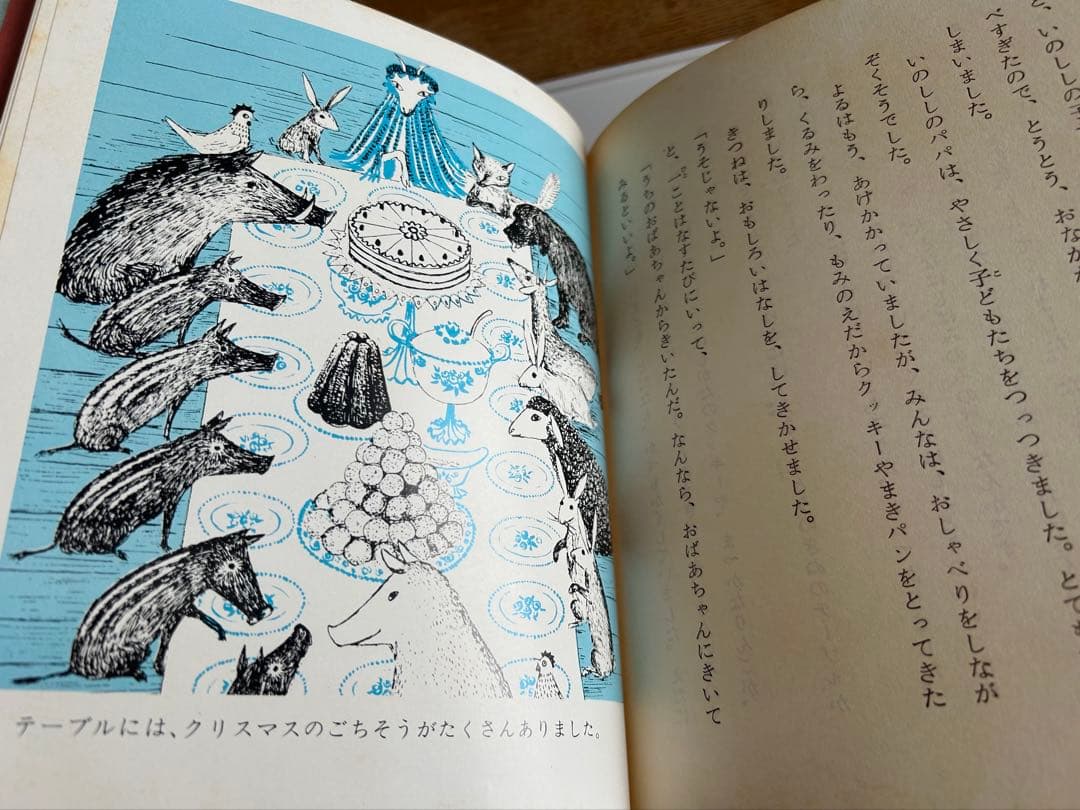 と、いのししの子
べすぎたので、とうとう、おなかが
しまいました。
いのししのパパは、やさしく子どもたちをつっつきました。とても
ぞくそうでした。
よるはもう、あけかかっていましたが、みんなは、おしゃべりをしなが
ら、くるみをわったり、もみのえだからクッキーやまきパンをとってきた
りしました。
きつねは、おもしろいはなしを、してきかせました。
「うそじゃないよ。」
と、一ことはなすたびにいって、
「うちのおばあちゃんからきいたんだ。なんなら、おばあちゃんにきいて
みるといいよ。」
テーブルには、クリスマスのごちそうがたくさんありました。